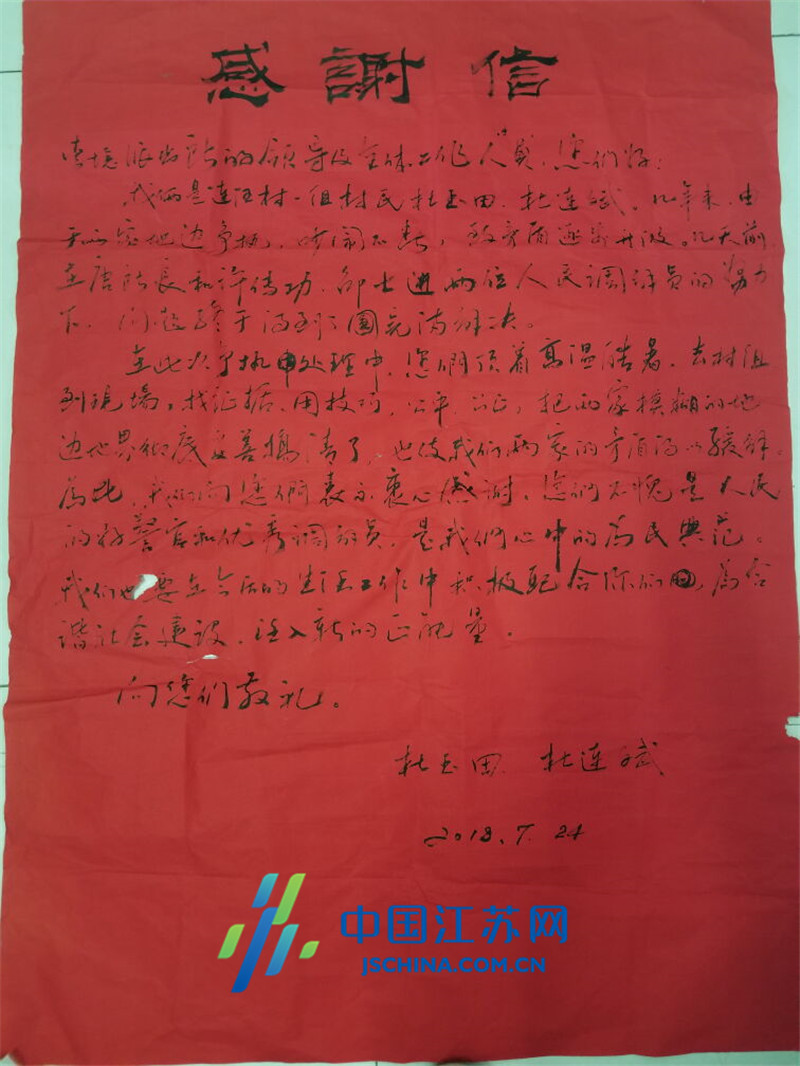 感謝信
派出所的领导及全体工作人员,您们好:
我俩是连汪村一组村民杜玉田、杜连斌,几年来,由
于两家地边争执,吵闹不断,致矛盾逐步升级。几天前
在唐所长和许传功、邵士进两位人民调解员的努力
下,问题终于得到了圆充满解决。
在此次了执中处理中,您們顶着高温酷暑,去村组
到现場,找证据、用技巧,公平、公正,把两家模糊的地
边地界彻底妥善搞清了,也使我们两家的矛盾得以缓解。
為此,我们向您們表示衷心感谢,您們不愧是人民
的好警官和优秀调解员,是我们心中的為民典范。
我们也要在今后的生活工作中积极配合你们,為合
谐社会建设,注入新的正能量。
向您们敬礼。
杜玉田 杜连斌
2018.7.24
中国江苏网
JSCHINA.COM.CN